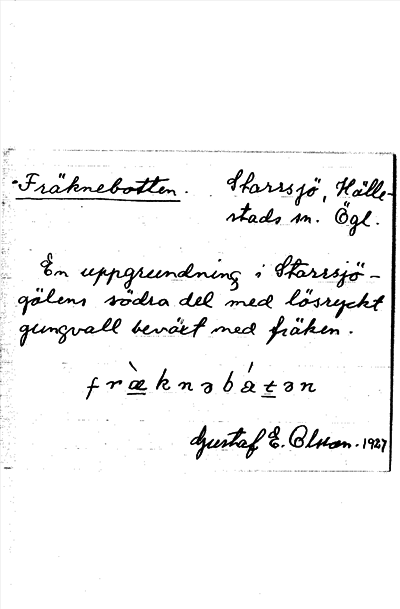 Fräknebotten. Starrsjö, Hälle-
stads sn. Ögl.
En uppgrundning i Starrsjö-
gölens södra del med lösryckt
gungvall bevärt med fräken.
fræ̀knəbátən
Gustaf E. Olsson. 1927